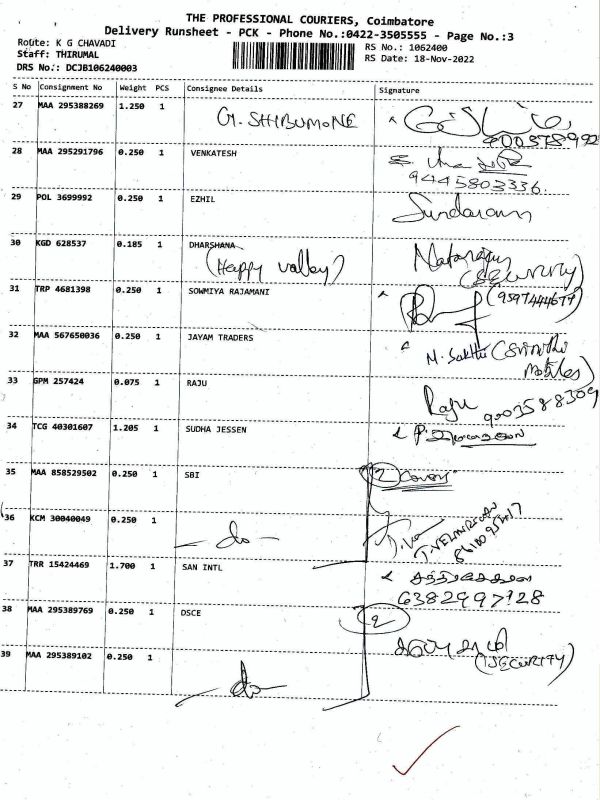 THE PROFESSIONAL COURIERS, Coimbatore
Delivery Runsheet - PCK - Phone No.:0422-3505555 - Page No.:3
Route: K G CHAVADI
RS No.: 1062400
Staff: THIRUMAL
RS Date: 18-Nov-2022
DRS No.: DCJB106240003
S No Consignment No Weight PCS Consignee Details Signature
27 MAA 295388269 1.250 1 G. SHIBUMONE
28 MAA 295291796 0.250 1 VENKATESH
9445803336
29 POL 3699992 0.250 1 EZHIL Sundaram
30 KGD 628537 0.185 1 DHARSHANA Natarajan
(Happy valley) (SECURITY)
31 TRP 4681398 0.250 1 SOWMIYA RAJAMANI (9597444677)
32 MAA 567650036 0.250 1 JAYAM TRADERS M. Sakthi
Mobiles)
33 GPM 257424 0.075 1 RAJU Raju 9003588309
34 TCG 40301607 1.205 1 SUDHA JESSEN
35 MAA 858529502 0.250 1 SBI 2
36 KCM 30040049 0.250 1 -do-
37 TRR 15424469 1.700 1 SAN INTL
6382997128
38 MAA 295389769 0.250 1 DSCE 2
(SECURITY)
39 MAA 295389102 0.250 1 -do-